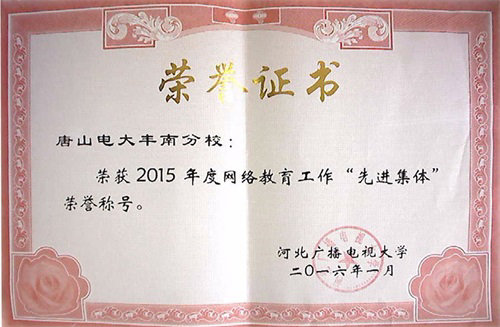 荣誉证书
唐山电大丰南分校：
荣获 2015 年度网络教育工作“先进集体”
荣誉称号。
河北广播电视大学
二〇一六年一月